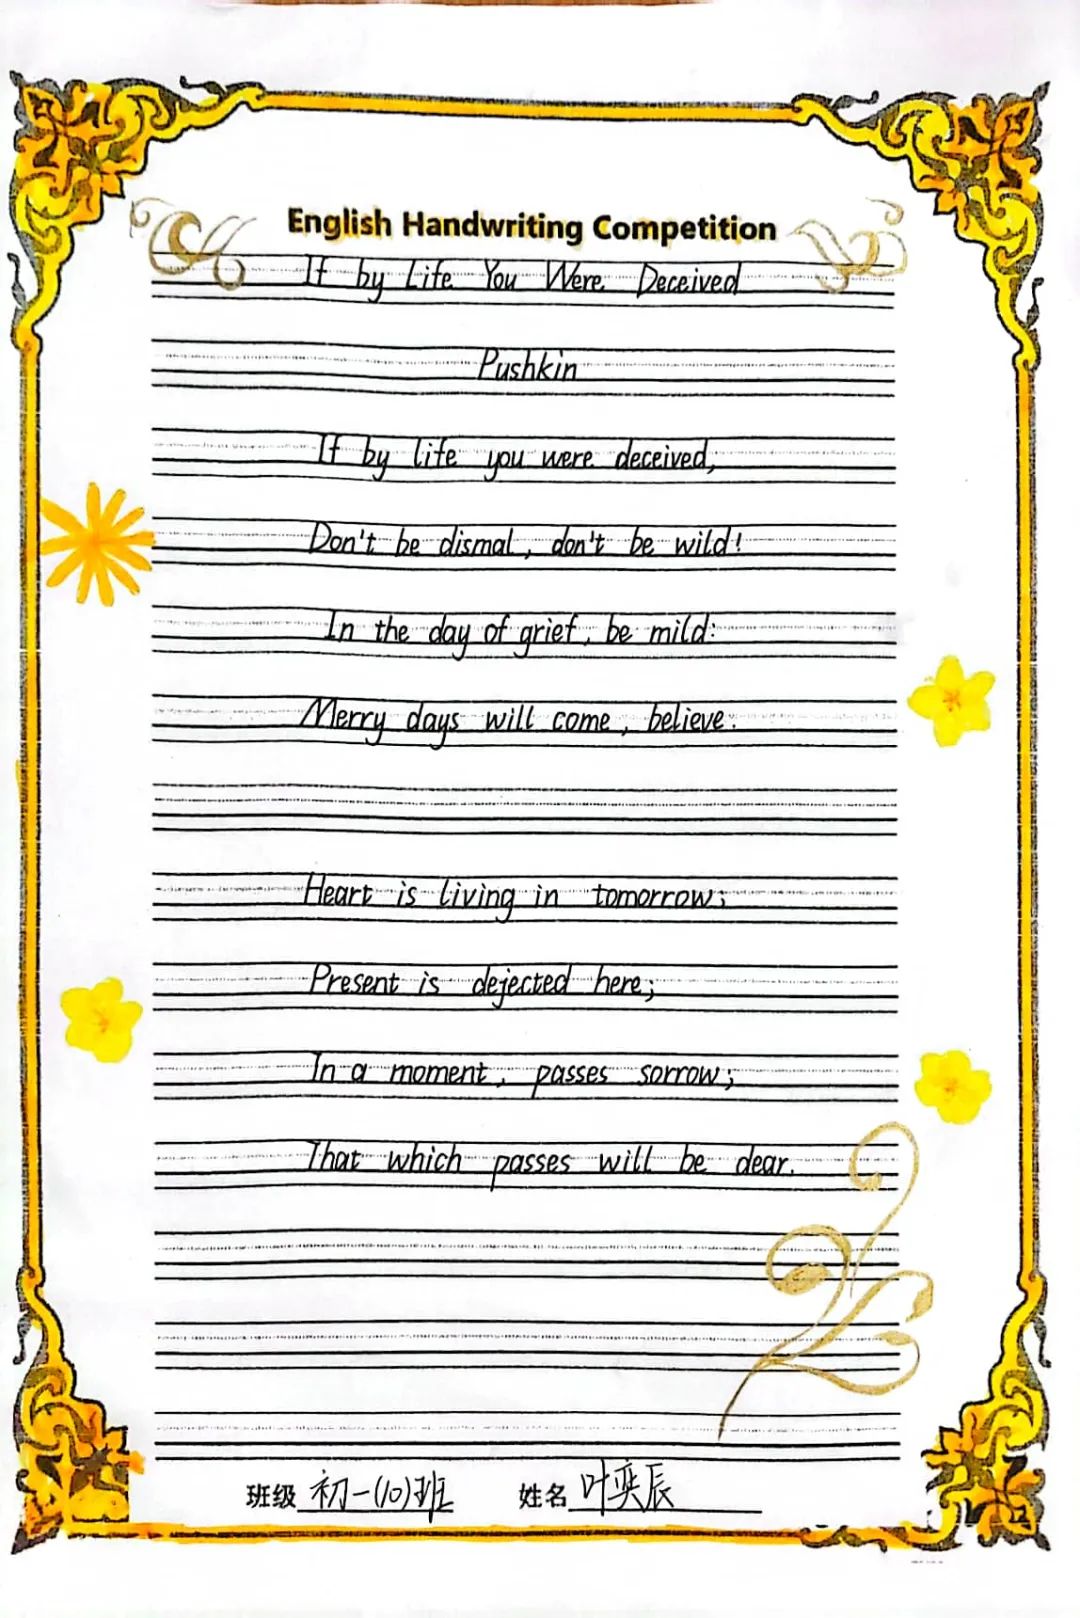 English Handwriting Competition
If by Life You Were Deceived
Pushkin
If by life you were deceived,
Don't be dismal, don't be wild!
In the day of grief, be mild:
Merry days will come, believe.
Heart is living in tomorrow;
Present is dejected here;
In a moment, passes sorrow;
That which passes will be dear.
班级 初一(10)班 姓名 叶奕辰